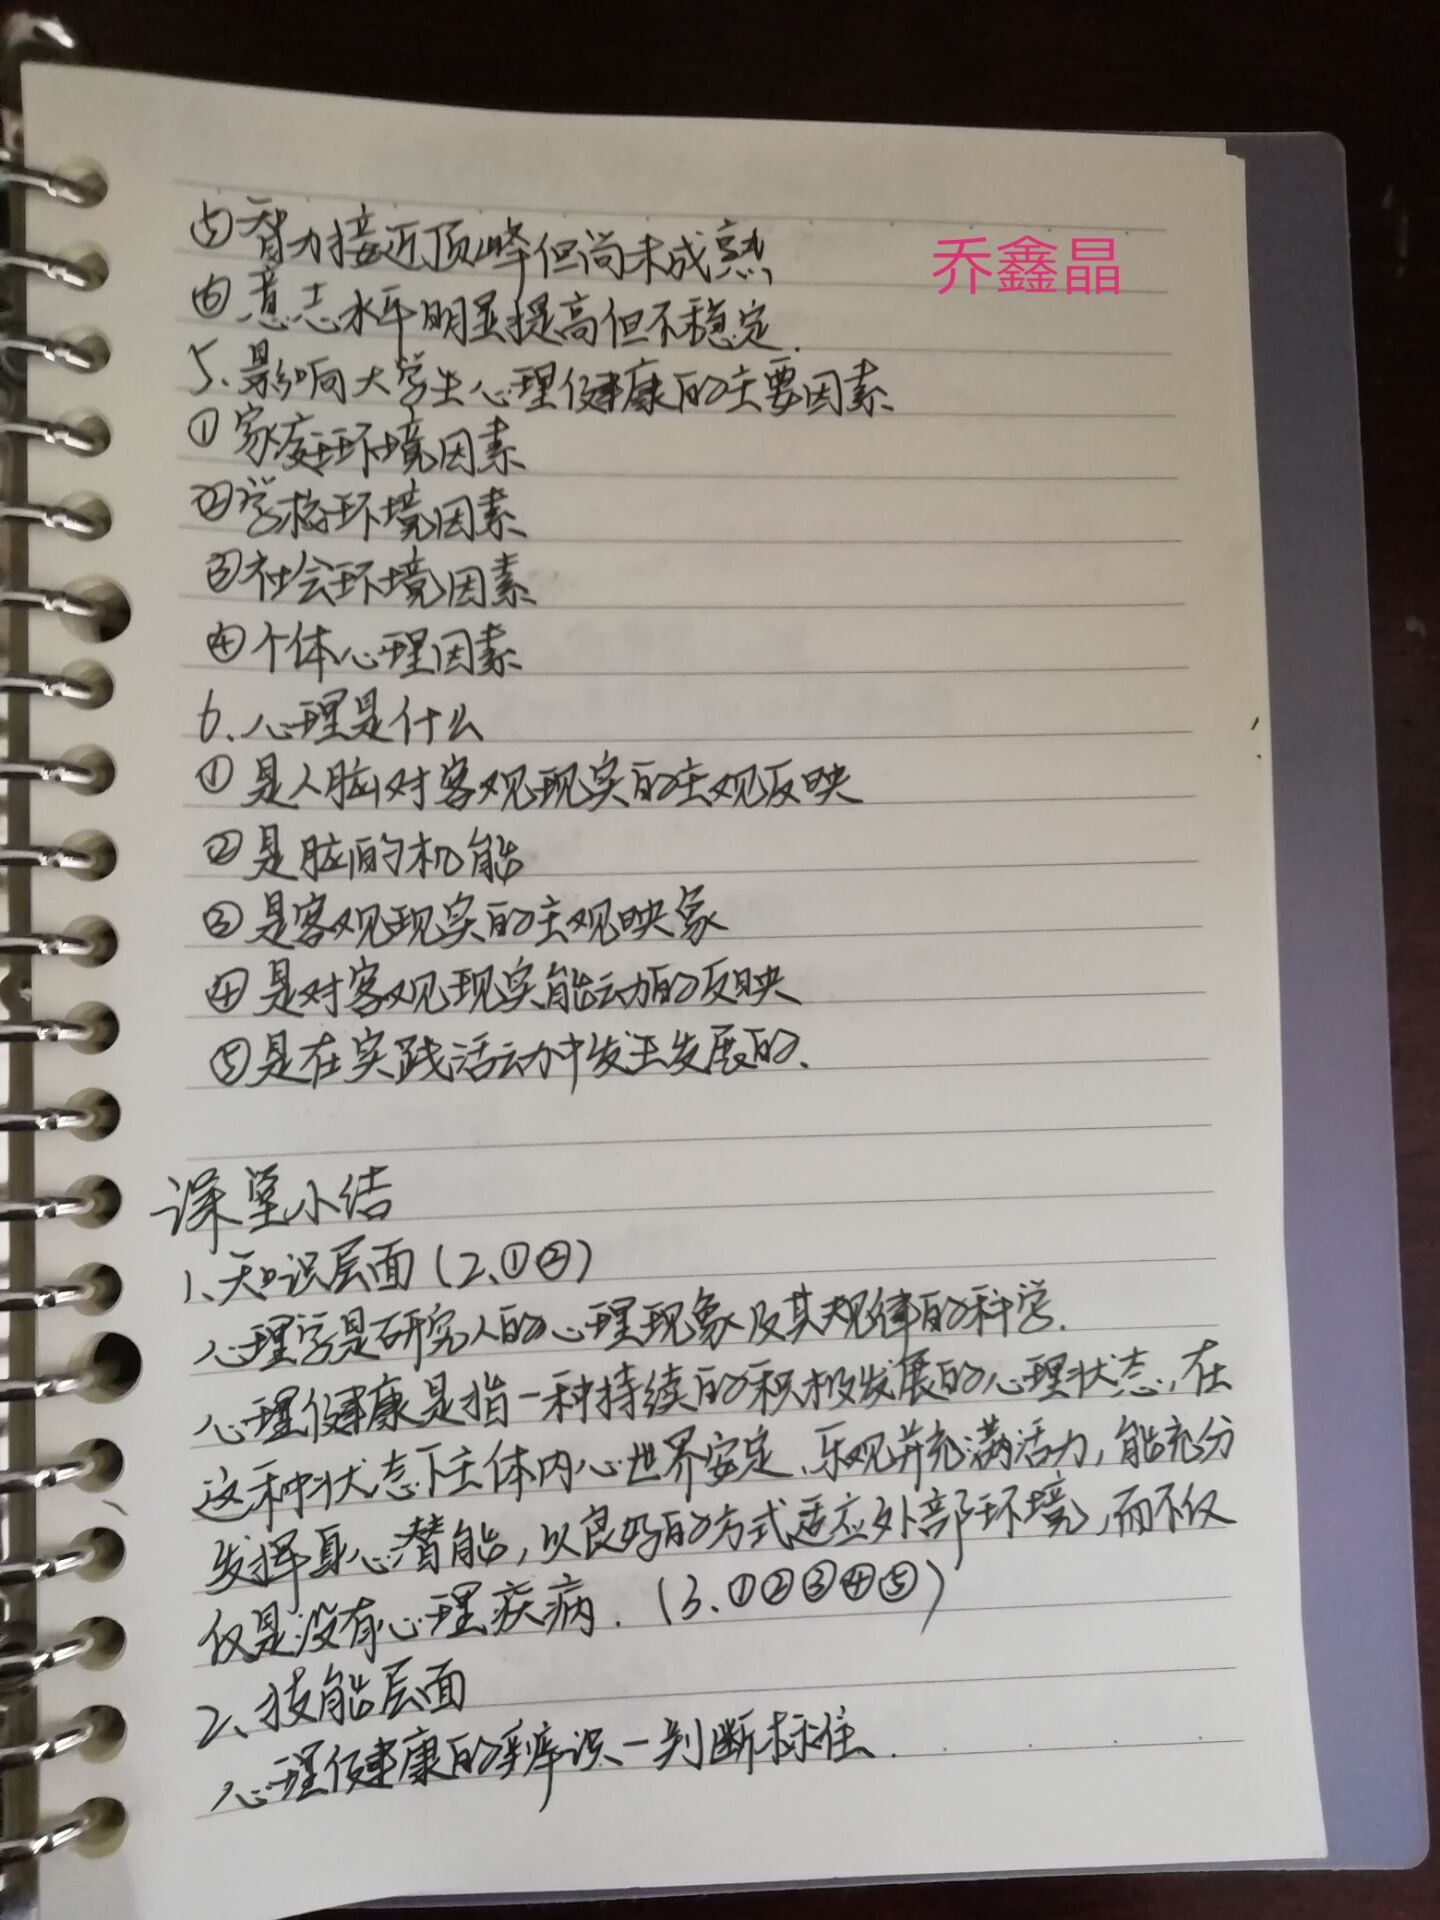 ⑤智力接近顶峰但尚未成熟
乔鑫晶
⑥意志水平明显提高但不稳定.
5、影响大学生心理健康的主要因素
①家庭环境因素
②学校环境因素
③社会环境因素
④个体心理因素
6、心理是什么
①是人脑对客观现实的主观反映
②是脑的机能
③是客观现实的主观映象
④是对客观现实能动的反映
⑤是在实践活动中发生发展的、
课堂小结
1、知识层面(2、①②)
心理学是研究人的心理现象及其规律的科学.
心理健康是指一种持续的积极发展的心理状态,在
这种状态下主体内心世界安定、乐观并充满活力,能充分
发挥身心潜能,以良好的方式适应外部环境,而不仅
仅是没有心理疾病.(3、①②③④⑤)
2、技能层面
心理健康的辨识一判断标准.